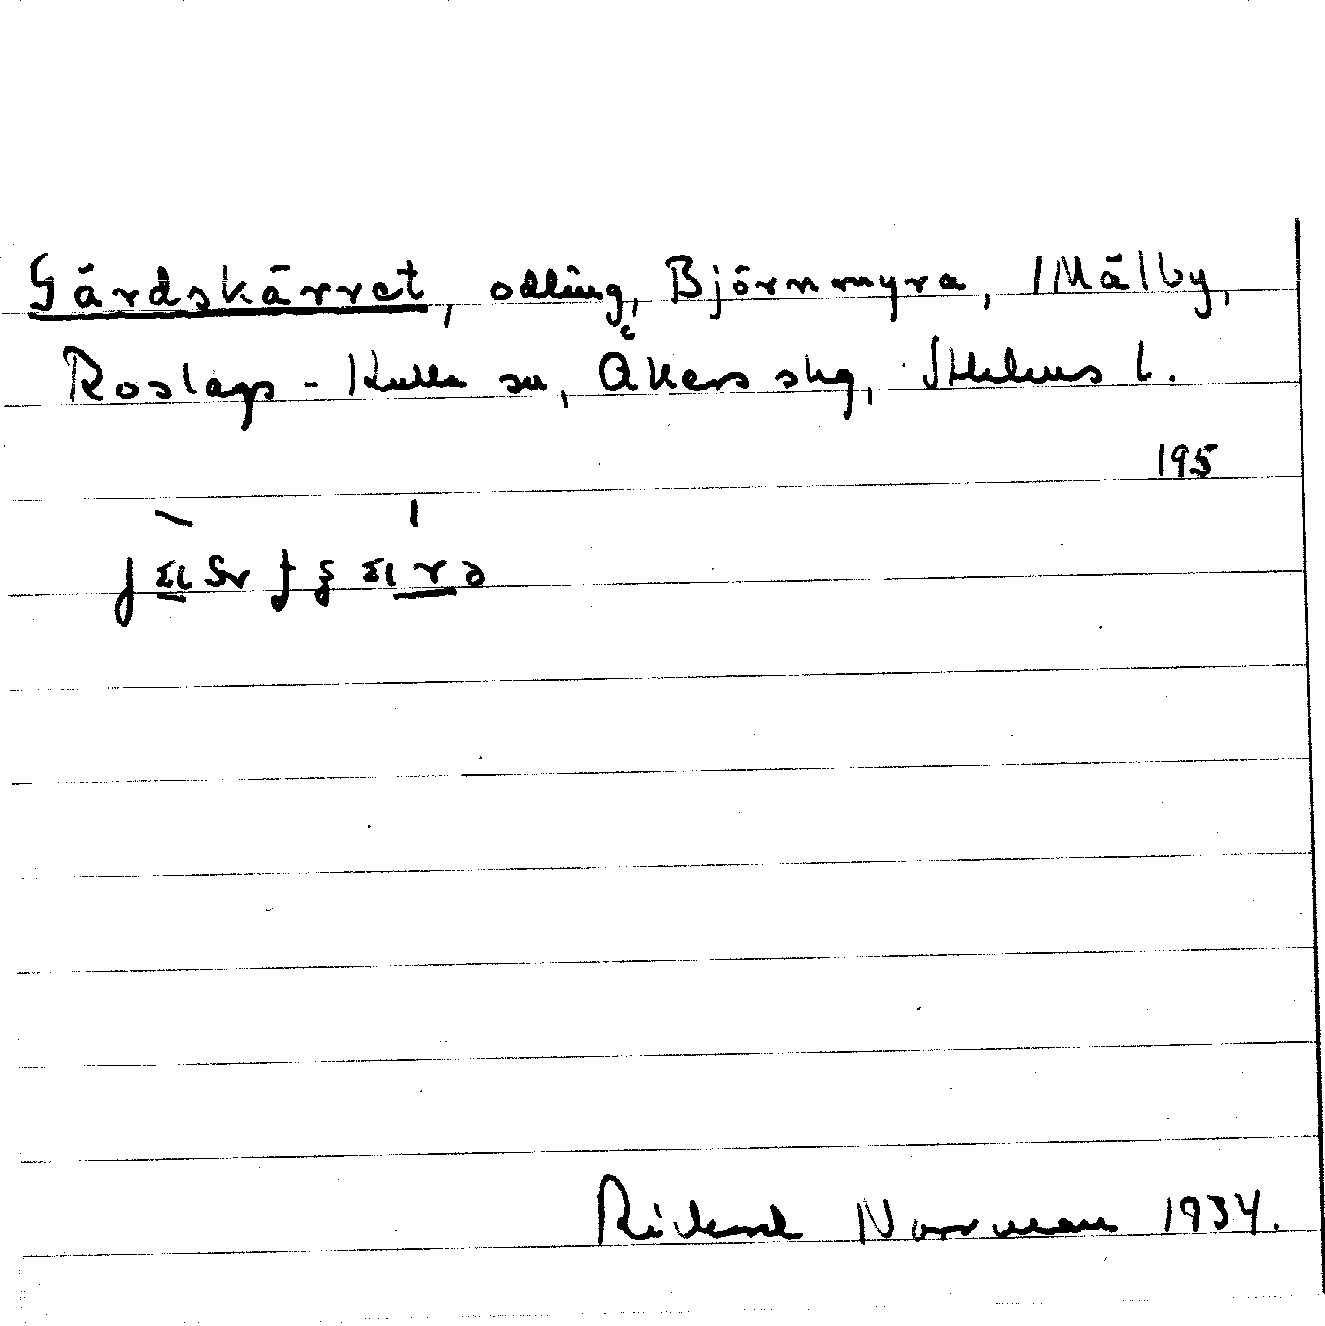 Gärdskärret, odling, Björnmyra, Målby,
Roslags-Kulla sn, Åkers skg, Sthlms l.
195
Rickard Norrman 1934.